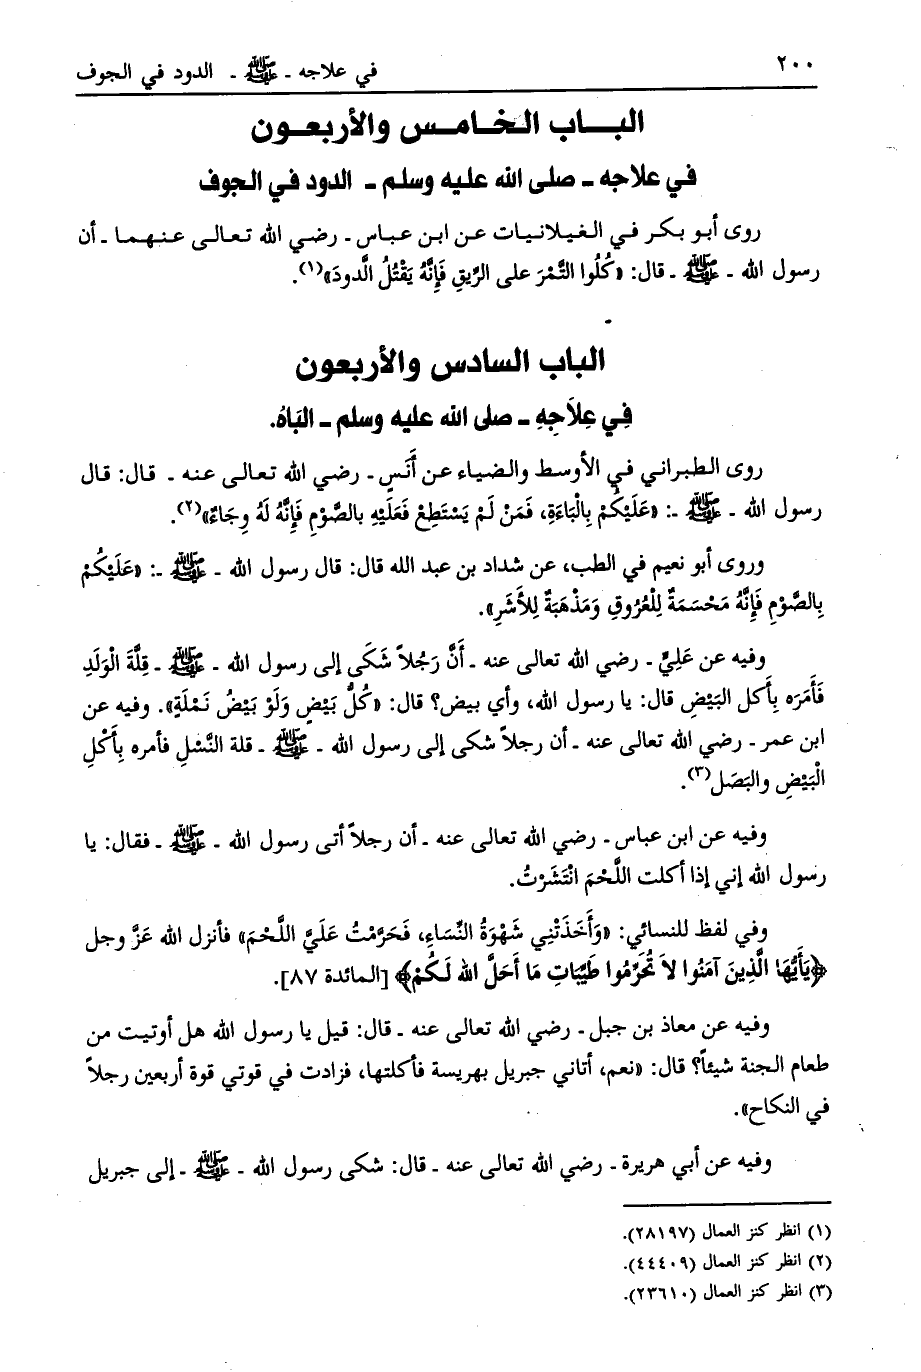 ٢٠٠
في علاجه ـ ﷺ ـ الدود في الجوف
البـــاب الخـامـس والأربعـون
في علاجه ـ صلى الله عليه وسلم ـ الدود في الجوف
روى أبو بكر في الغيلانيات عن ابن عباس ـ رضي الله تعالى عنهما ـ أن
رسول الله ـ ﷺ ـ قال: «كُلُوا التَّمْرَ على الرِّيقِ فَإِنَّهُ يَقْتُلُ الَّدودَ»(١).
الباب السادس والأربعون
فِي عِلاَجِهِ ـ صلى الله عليه وسلم ـ البَاهُ.
روى الطبراني في الأوسط والضياء عن أَنَسٍ ـ رضي الله تعالى عنه ـ قال: قال
رسول الله ـ ﷺ ـ: «عَلَيْكُمْ بِالْبَاءَةِ، فَمَنْ لَمْ يَسْتَطِعْ فَعَلَيْهِ بالصَّوْمِ فَإِنَّهُ لَهُ وِجَاءٌ»(٢).
وروى أبو نعيم في الطب، عن شداد بن عبد الله قال: قال رسول الله ـ ﷺ ـ: «عَلَيْكُمْ
بِالصَّوْمِ فَإِنَّهُ مَحْسَمَةٌ لِلْعُرُوقِ وَمَذْهَبَةٌ لِلأَشَرِ».
وفيه عن عَلِيٍّ ـ رضي الله تعالى عنه ـ أَنَّ رَجُلاً شَكَى إلى رسول الله ـ ﷺ ـ قِلَّةَ الْوَلَدِ
فَأَمَرَه بِأَكل البَيْضِ قال: يا رسول الله، وأي بيض؟ قال: «كُلُّ بَيْضٍ وَلَوْ بَيْضُ نَمْلَةٍ». وفيه عن
ابن عمر ـ رضي الله تعالى عنه ـ أن رجلاً شكى إلى رسول الله ـ ﷺ ـ قلة النَّسْلِ فأمره بِأَكْلِ
الْبَيْضِ والبَصَل(٣).
وفيه عن ابن عباس ـ رضي الله تعالى عنه ـ أن رجلاً أتى رسول الله ـ ﷺ ـ فقال: يا
رسول الله إني إذا أكلت اللَّحْمَ انْتَشَرْتُ.
وفي لفظ للنسائي: «وَأَخَذَتْنِي شَهْوَةُ النِّسَاءِ، فَحَرَّمْتُ عَلَيَّ اللَّحْمَ» فأنزل الله عَزَّ وجل
﴿يَأَيُّهَا الَّذِينَ آمَنُوا لاَ تُحَرِّمُوا طَيِّبَاتِ مَا أَحَلَّ الله لَكُمْ﴾ [المائدة ٨٧].
وفيه عن معاذ بن جبل ـ رضي الله تعالى عنه ـ قال: قيل يا رسول الله هل أوتيت من
طعام الجنة شيئاً؟ قال: «نعم، أتاني جبريل بهريسة فأكلتها، فزادت في قوتي قوة أربعين رجلاً
في النكاح».
وفيه عن أبي هريرة ـ رضي الله تعالى عنه ـ قال: شكى رسول الله ـ ﷺ ـ إلى جبريل
(١) انظر كنز العمال (٢٨١٩٧).
(٢) انظر كنز العمال (٤٤٤٠٩).
(٣) انظر كنز العمال (٢٣٦١٠).